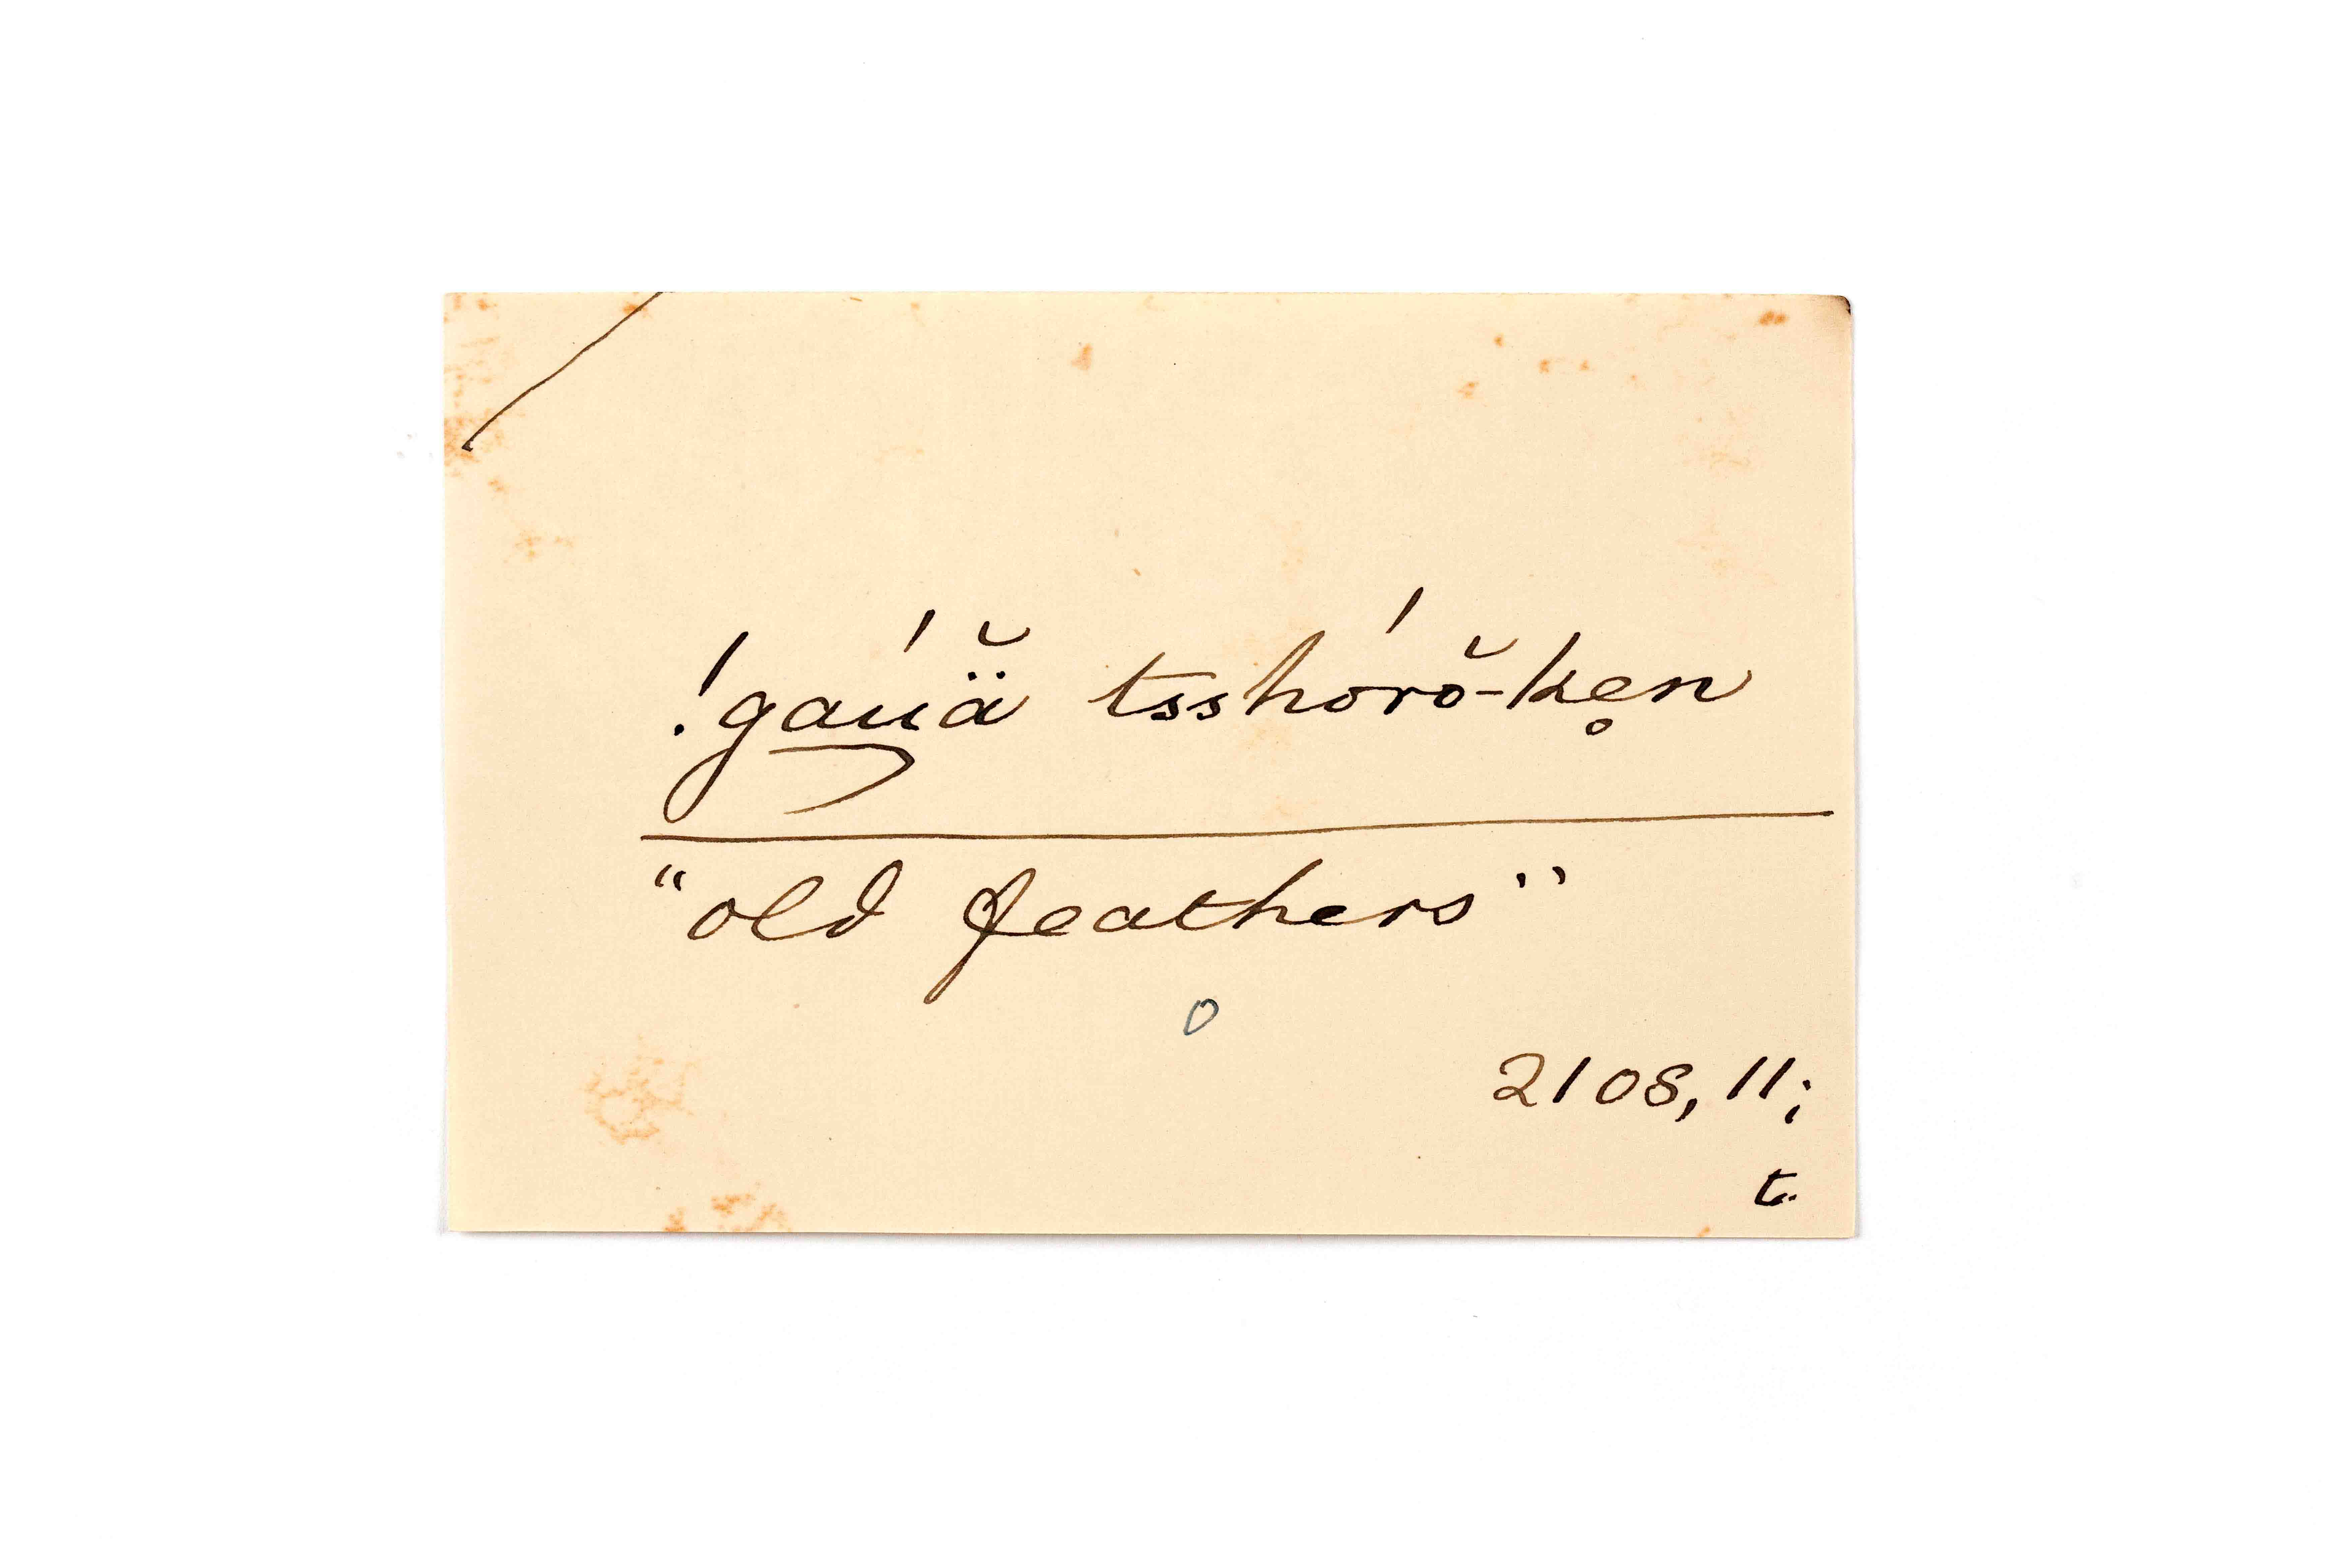 !gaúä̆ tsshórŏ-ken̥
"old feathers"
o
2108, 11;
t.